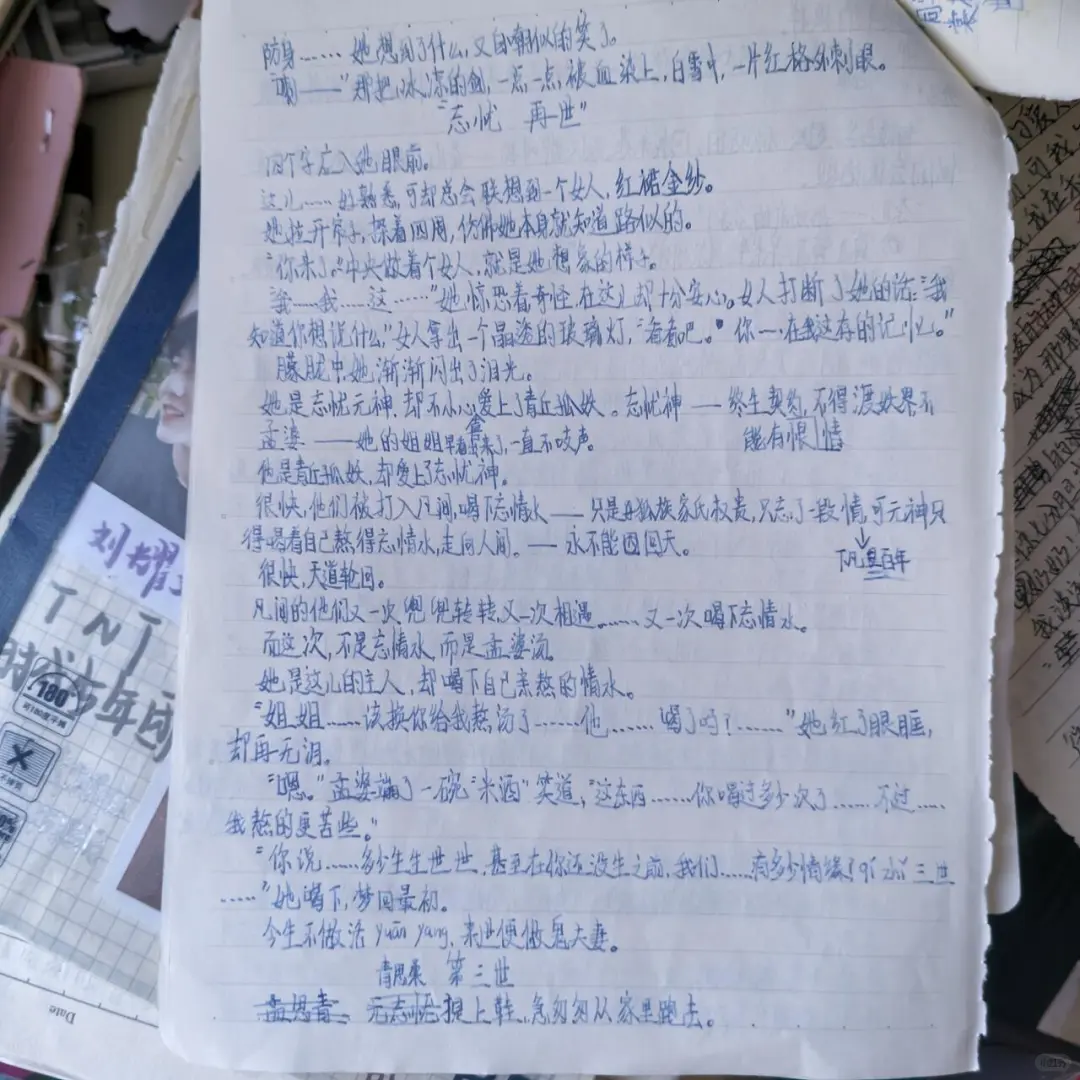 防身……她想到了什么,又自嘲似的笑了。
"那把冰冻的剑,一点一点被血染上,白雪中,一片红格外刺眼。
"忘忧 再世"
四个字应入她眼前。
这儿……好熟悉,可却总会联想到一个女人,红裙金纱。
她拉开帘子,探着四周,仿佛她本身就知道路似的。
"你来了。"中央做着个女人,就是她想象的样子。
"我……我……这……"她惊恐着奇怪在这儿却十分安心。女人打断了她的话:"我
知道你想说什么,"女人拿出一个晶透的玻璃灯,"看看吧。你一在我这存的记忆。"
朦胧中,她渐渐闪出了泪光。
她是忘忧元神,却不小心爱上了青丘狐妖。忘忧神——终生契约,不得渡妖界不
能有恨情
孟婆——她的姐姐早看出来了,一直不吱声。
他是青丘狐妖,却爱上了忘忧神。
很快,他们被打入凡间,喝下忘情水——只是青狐族家氏权贵,只忘了一段情,可元神只
得喝着自己熬得忘情水,走向人间。—永不能回回天。
下凡百年
很快,天道轮回。
凡间的他们又一次兜兜转转,又一次相遇。……又一次喝下忘情水。
而这次,不是忘情水,而是孟婆汤。
她是这儿的主人,却喝下自己亲熬的情水。
"姐姐……该换你给我熬汤了……他……喝了吗?……"她红了眼眶,
却再无泪。
"嗯。"孟婆端了一碗"米酒"笑道,"这东西……你喝过多少次了……不过……
我熬的更苦些。"
"你说……多少生生世世,甚至在你还没生之前,我们……有多少情缘!三世
……"她喝下,梦回最初。
今生不做活yuān yang,来世便做鬼夫妻。
第三世
孟思青 元忘忧提上鞋,急匆匆从家里跑去。
刘耀
TNT
时代少年团
180°
Date